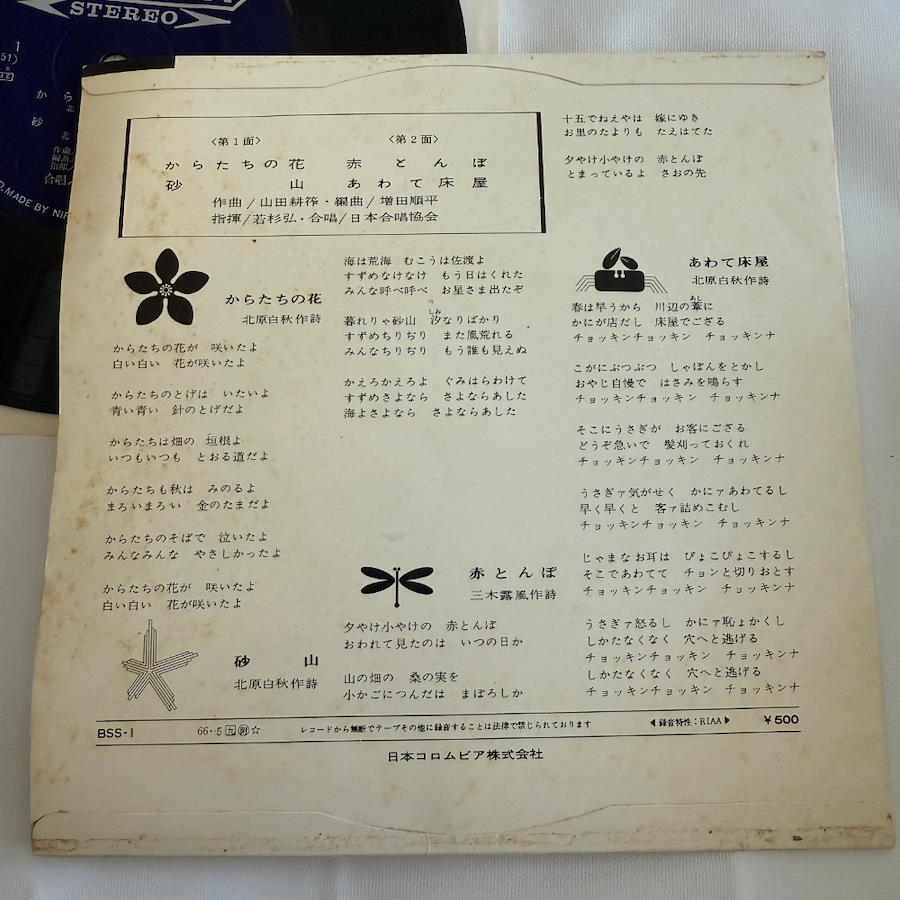 STEREO
1
51)
か ら
北
砂
北
作曲
編曲
指揮
合唱
D.MADE BY NIP
〈第1面〉 〈第2面〉
からたちの花 赤とんぼ
砂山 あわて床屋
作曲/山田耕筰・編曲/増田順平
指揮/若杉弘・合唱/日本合唱協会
からたちの花
北原白秋作詩
からたちの花が 咲いたよ
白い白い 花が咲いたよ
からたちのとげは いたいよ
青い青い 針のとげだよ
からたちは畑の 垣根よ
いつもいつも とおる道だよ
からたちも秋は みのるよ
まろいまろい 金のたまだよ
からたちのそばで 泣いたよ
みんなみんな やさしかったよ
からたちの花が 咲いたよ
白い白い 花が咲いたよ
砂山
北原白秋作詩
海は荒海 むこうは佐渡よ
すずめなけなけ もう日はくれた
みんな呼べ呼べ お星さま出たぞ
暮れりゃ砂山 汐なりばかり
しお
すずめちりぢり また風荒れる
みんなちりぢり もう誰も見えぬ
かえろかえろよ ぐみはらわけて
すずめさよなら さよならあした
海よさよなら さよならあした
赤とんぼ
三木露風作詩
夕やけ小やけの 赤とんぼ
おわれて見たのは いつの日か
山の畑の 桑の実を
小かごにつんだは まぼろしか
十五でねえやは 嫁にゆき
お里のたよりも たえはてた
夕やけ小やけの 赤とんぼ
とまっているよ さおの先
あわて床屋
北原白秋作詩
春は早うから 川辺の葦に
あし
かにが店だし 床屋でござる
チョッキンチョッキン チョッキンナ
こがにぶつぶつ しゃぼんをとかし
おやじ自慢で はさみを鳴らす
チョッキンチョッキン チョッキンナ
そこにうさぎが お客にござる
どうぞ急いで 髪刈っておくれ
チョッキンチョッキン チョッキンナ
うさぎァ気がせく かにァあわてるし
早く早くと 客ァ詰めこむし
チョッキンチョッキン チョッキンナ
じゃまなお耳は ぴょこぴょこするし
そこであわてて チョンと切りおとす
チョッキンチョッキン チョッキンナ
うさぎァ怒るし かにァ恥ょかくし
しかたなくなく 穴へと逃げる
チョッキンチョッキン チョッキンナ
しかたなくなく 穴へと逃げる
チョッキンチョッキン チョッキンナ
BSS-1 66・5 九 附 ☆ レコードから無断でテープその他に録音することは法律で禁じられております ◀録音特性：RIAA▶ ￥500
日本コロムビア株式会社